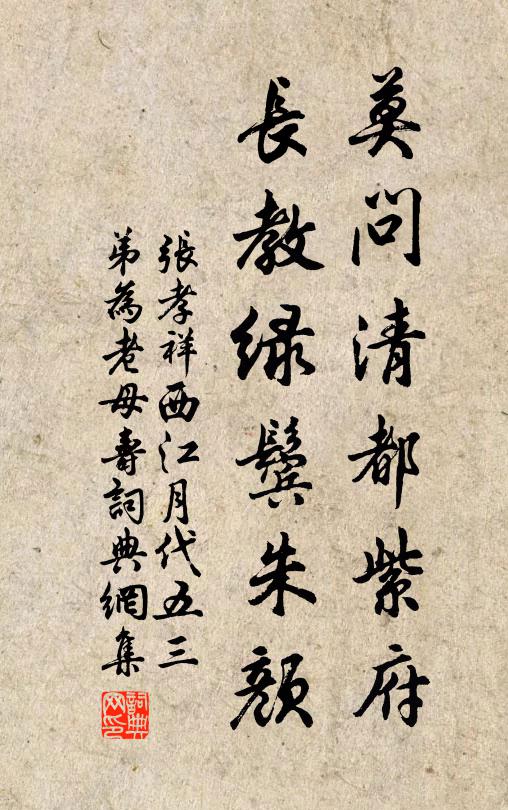 莫問清都紫府
長教緑鬓朱顏
張孝祥西江月代五三
弟為老母壽詞典網集
詞典
网印